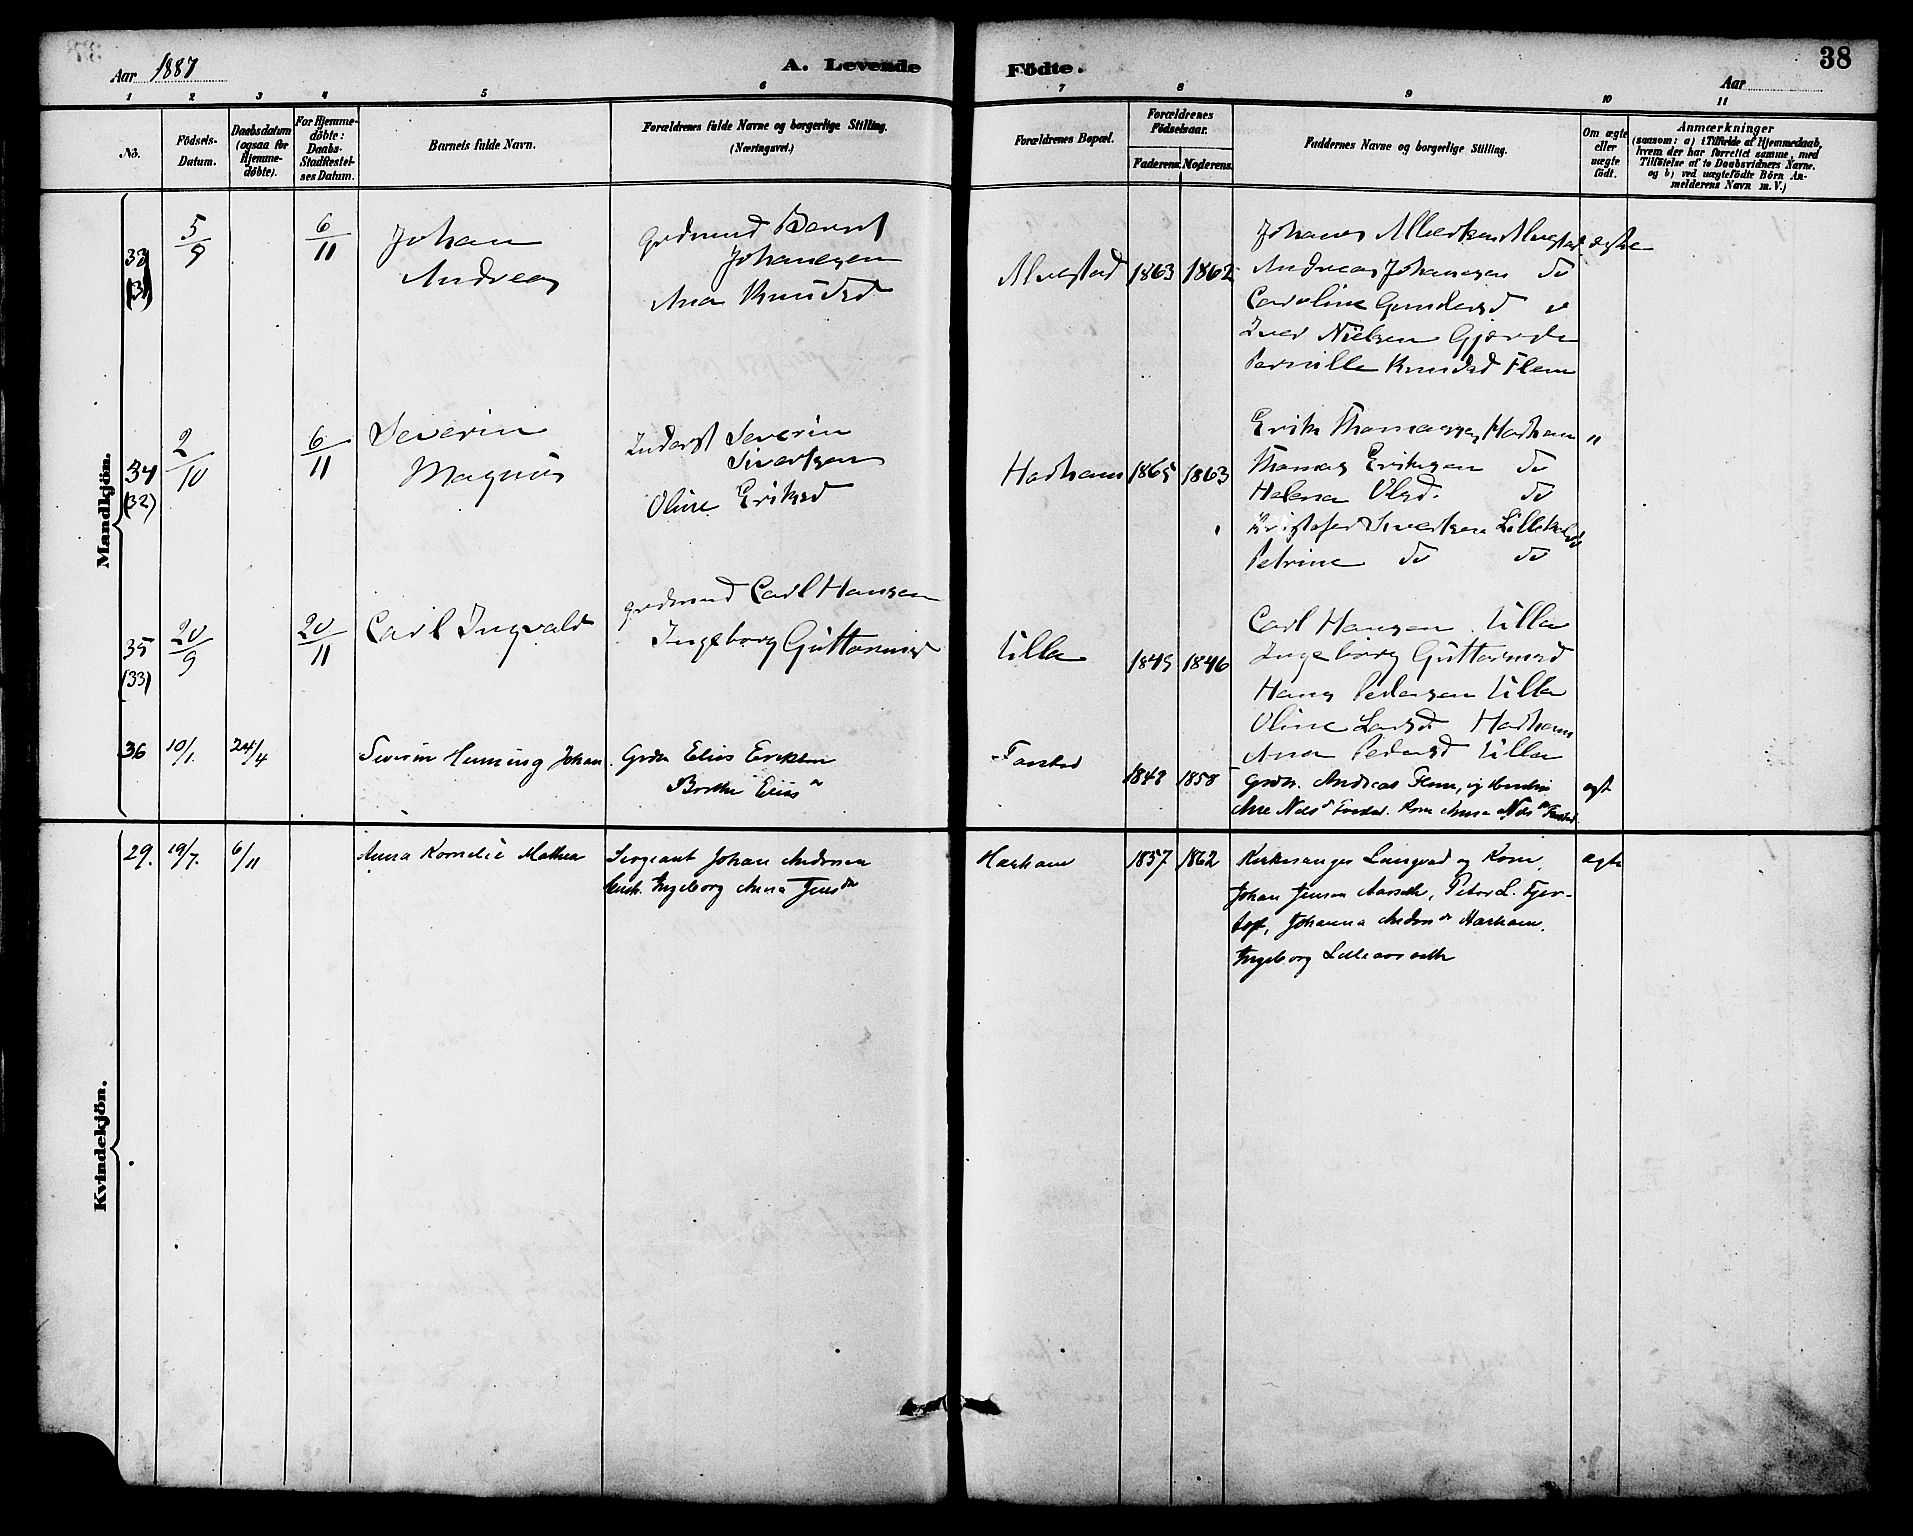 38
Aar 1887
A. Levende Födte.
Aar
1 2 3 4 5 6 7 8 9 10 11
No.
Födsels-
Datum.
Daabsdatum
(ogsaa for
Hjemme-
døbte).
For Hjemme-
døbte:
Daabs-
Stadfæstel-
ses Datum.
Barnets fulde Navn.
Forældrenes fulde Navne og borgerlige Stilling.
(Næringsvei.)
Forældrenes Bopæl.
Forældrenes
Födselsaar.
Faderens. Moderens.
Faddernes Navne og borgerlige Stilling.
Om ægte
eller
uægte
födt.
Anmærkninger
(saasom: a) i Tilfælde af Hjemmedaab,
hvem der har forrettet samme, med
Tilföielse af to Daabsvidners Navne.
og b) ved uægtefödte Börn An-
melderens Navn m. V.)
Mandkjön.
33
(31)
5/9
6/11
Johan
Andreas
Johanesen
Ana Knudsd
Alvestad 1863 1862
Andreas Johanesen do
Caroline Gundersd
Iver Nielsen Gjærde
Pernille Knudsd Flem
34
(32)
2/10
6/11
Severin
Magnus
Inderst Severin
Sivertsen
Oline Eriksd
Harham 1865 1863
Erik Thomassen Harham "
Thomas Eriksen do
Helena Olsd. do
Kristofer Sivertsen
Petrine do do
35
(33)
20/9
20/11
Carl Ingvald
grdmand Carl Hansen
Ingeborg Guttormsd
Ulla 1845 1846
Carl Hansen Ulla
Ingeborg Guttormsd
Hans Pedersen Ulla
Oline Larsd Harham
Ana Pedersd Ulla
36 10/1. 24/4
Severin Henning Johan.
Grdm Elias Eriksen
Berthe Elias dr
Farstad
1848 1858
Grdbr. Andreas Flem, og
Ane Nils dr Farstad. Kone Anna Nils dr Farstad.
ægt
Kvindekjön.
29. 19/7. 6/11
Anna Kornelie Mathea
Sergeant Johan Andersen
Hust. Ingeborg Anna Jens dr
Harham 1857 1862
Kirkesanger Langvad og Kone,
Johan Jensen Aarseth, Peter L. Fjør-
toft, Johanna Anders dr Harham.
Ingeborg Lilleaarseth
ægte